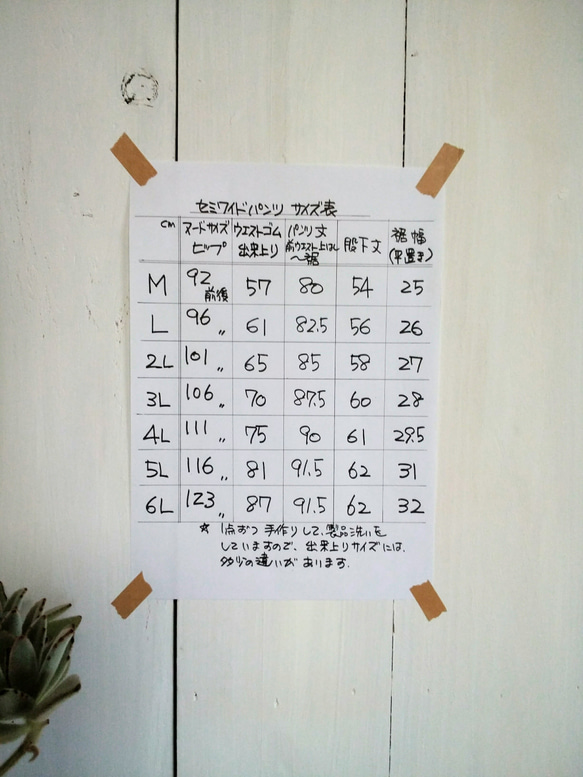 セミワイドパンツ サイズ表
cm ヌードサイズ ヒップ ウエストゴム 出来上り パンツ丈 前ウエスト上はし 〜裾 股下丈 裾幅 (平置き)
M 92 前後 57 80 54 25
L 96 〃 61 82.5 56 26
2L 101 〃 65 85 58 27
3L 106 〃 70 87.5 60 28
4L 111 〃 75 90 61 29.5
5L 116 〃 81 91.5 62 31
6L 123 〃 87 91.5 62 32
☆ 1点ずつ 手作りして、製品洗いを
していますので、出来上りサイズには、
多少の違いが あります.